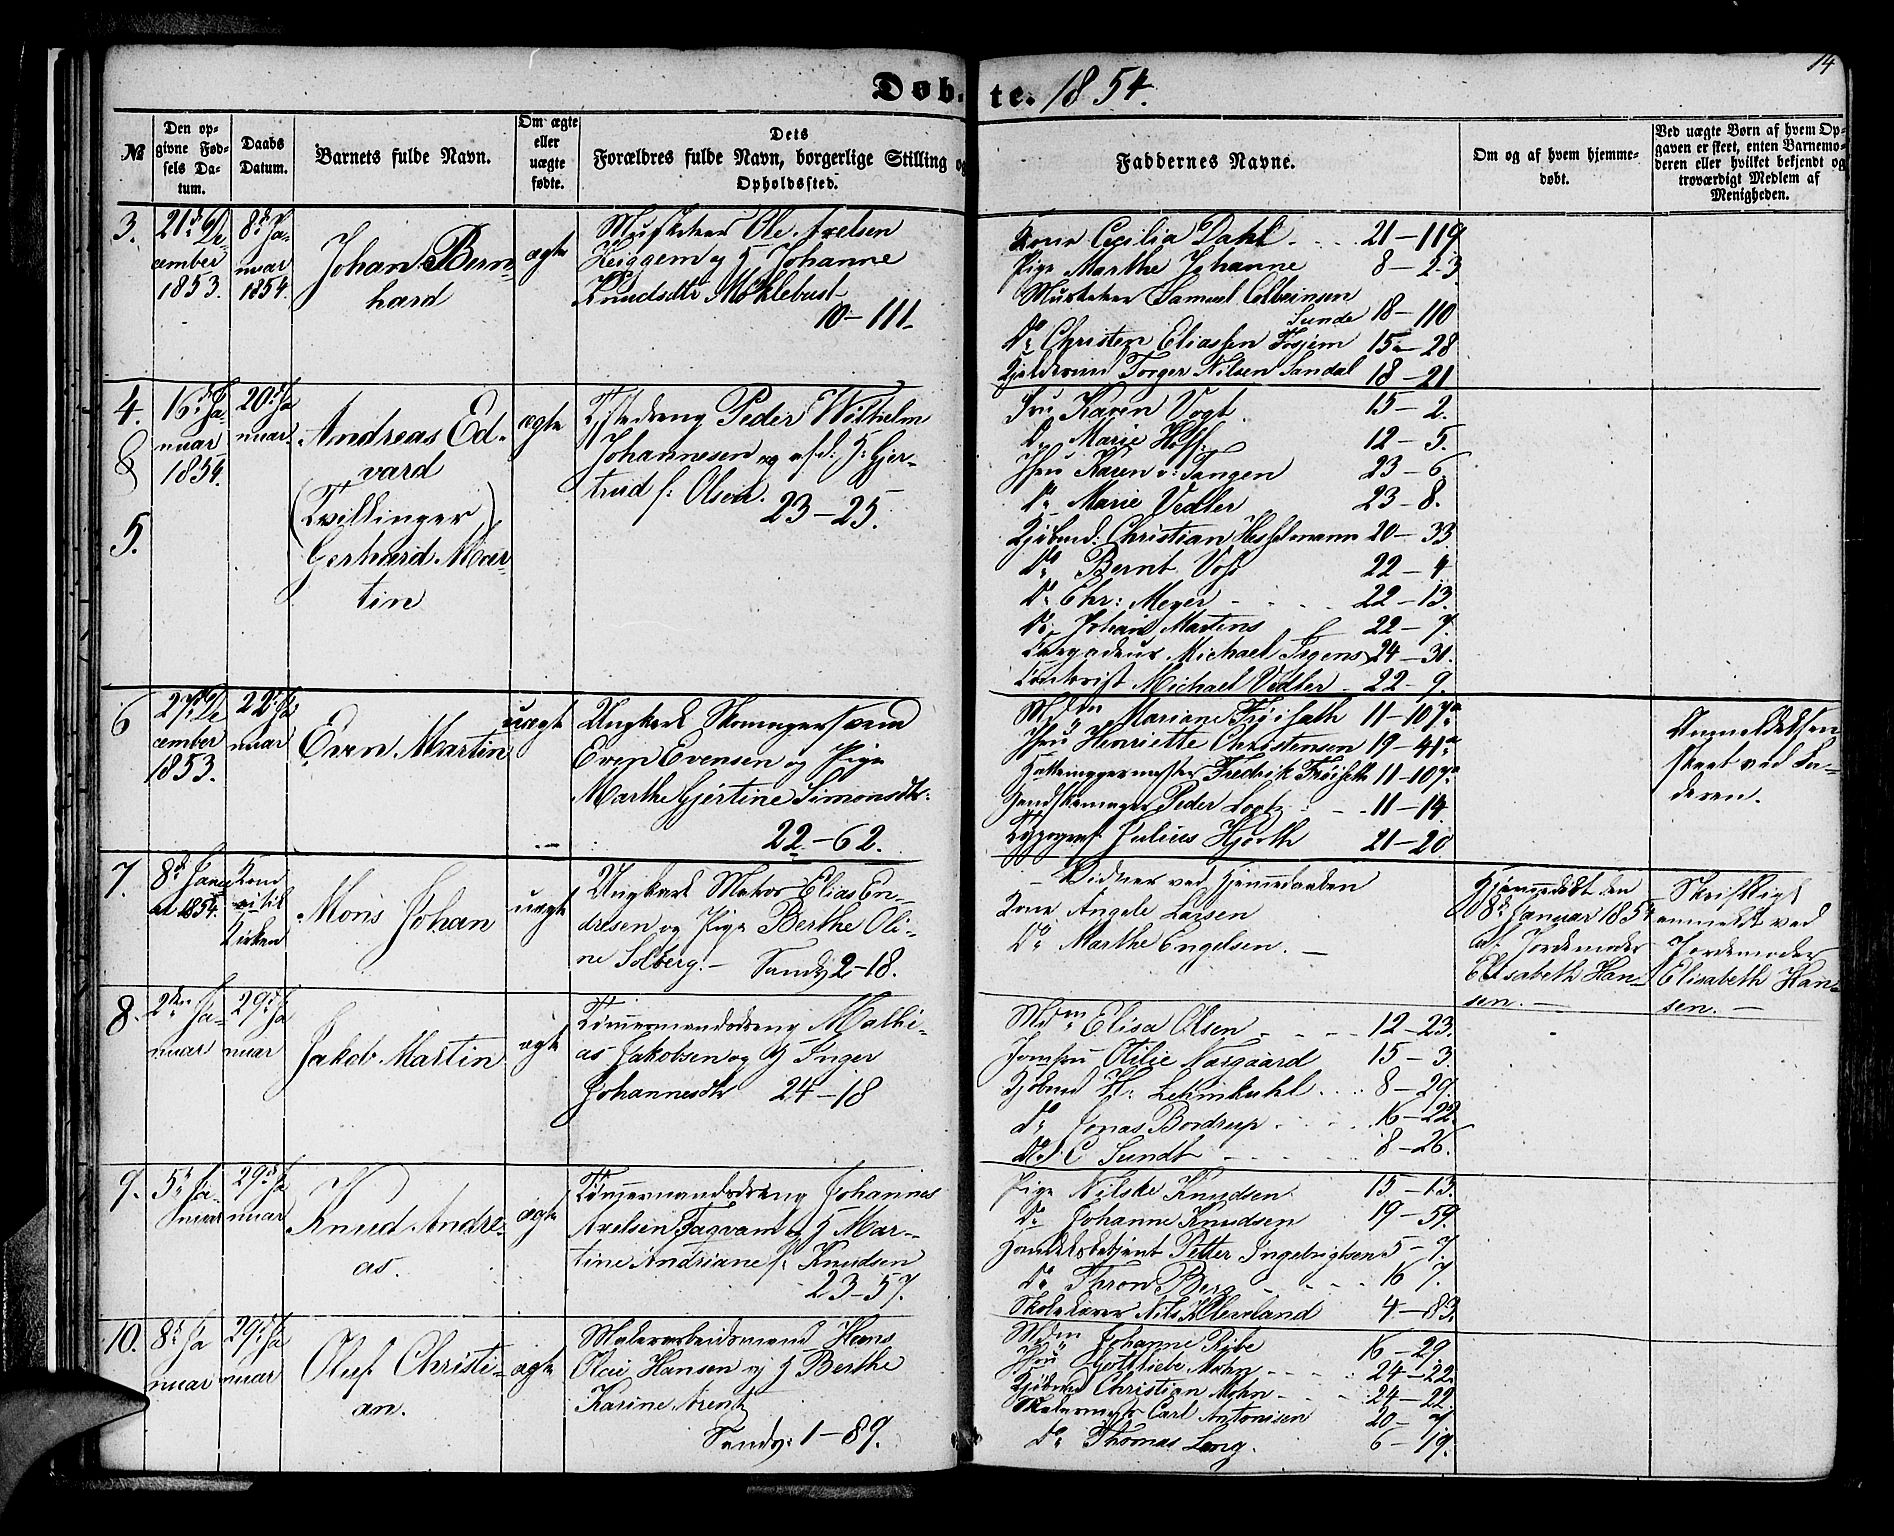 14
Døb-te. 1854.
№
Den opgivne Fødsels Datum.
Daabs Datum.
Barnets fulde Navn.
Om ægte eller uægte fødte.
Dets Forældres fulde Navn, borgerlige Stilling og Opholdssted.
Faddernes Navne.
Om og af hvem hjemmedøbt.
Ved uægte Børn af hvem Opgaven er skeet, enten Barnemoderen eller hvilket bekjendt og troværdigt Medlem af Menigheden.
3.
21de De-
cember
1853.
8de Ja-
nuar
1854.
Johan Bern-
hard
ægte
Musketeer Ole Axelsen
og H Johanne
Knudsdtr Møklebust
10-111.
Kone Cecilia Dahl 21-119
Pige Marthe Johanne 8-23
Musketeer Samuel
Sunde 18-110
Do Christen Eliassen 15-28
Torger Nilsen Sandal 18-21
4.
&
5.
16de Ja-
nuar
1854.
20de Ja
nuar
Andreas Ed-
vard
(Tvillinger)
Gerhard Mar-
tin
ægte
Peder Wilhelm
Johannesen og H: Gjer-
trud f: Olsen.
23-25.
Fru Karen Vogt 15-2.
Do Marie Hoff. 12-5.
Jfru Karen v: Tangen 23-6
Do Marie Vedler 23-8.
Kjøbmd: Christian Hesselmann 20-33
Do Bernt Voss 22-4
Do Chr: Meyer 22-13.
Do Johan Martens 22-7.
Michael Irgens 24-31.
Contorist Michael Vedler 22-9.
6
27de De
cember
1853.
22de Ja
nuar
Even Martin
uægte
Ungkarl
Even Evensen og Pige
Marthe Gjertine Simonsdtr:
22-62.
Mdm Mariane Frøiseth 11-107a
Jfru Henriette Christensen 19-41a
Hattemagermester Fredrik Frøiseth 11-107a
Peder 11-14
Typograf Julius Hjorth 21-20
Anmeldelsen
skeet ved Fa-
deren.
7.
8de Janu
ar 1854.
Kom
ei til
Kirken
Mons Johan
uægte
Ungkarl Elias En-
dresen og Pige Berthe Oli-
ne Solberg. - Sandv. 2-18.
Vidner ved Hjemmedaaben
Kone Angele Larsen
Do Marthe Engelsen.
Hjemmedøbt den
8de Januar 1854
af Jordemoder
Elisabeth Han-
sen.
Skriftligt
anmeldt ved
Jordemoder
Elisabeth Han-
sen.
8.
2den Ja-
nuar
29de Ja
nuar
Jakob Martin
ægte
Tømmermandsdreng Mathi-
as Jakobsen og H Inger
Johannesdtr 24-18
Mdm Elisa Olsen 12-23.
Jomfru Otilie Nargaard 15-3
Kjøbmd H: Lehmkuhl 8-29.
do Jonas Bordrup 16-22.
do J. C Sundt 8-26.
9.
5te Ja-
nuar
29de Ja
nuar
Knud Andre-
as.
ægte
Tømmermandsdreng Johannes
Axelsen og H Mar-
tine Andriane f: Knudsen
23-57.
Pige Nilske Knudsen 15-13.
Do Johanne Knudsen 19-59.
Handelsbetjent Petter Ingebrigtsen 5-7.
Do Thron Berg 16 7.
Skolelærer Nils Kleveland 4-83.
10.
8de Ja
nuar
29de Ja
nuar
Oluf Christi-
an.
ægte
Hans
Olai Hansen og H Berthe
Karine Arentz
Sandv: 1-89.
Mdm Johanne Ribe 16-29
Jfru Gottliebe Mohn 24-22.
Kjøbmd Christian Mohn 24-22
Malermester Carl Antonisen 20-7
Do Thomas Lang. 6-19.